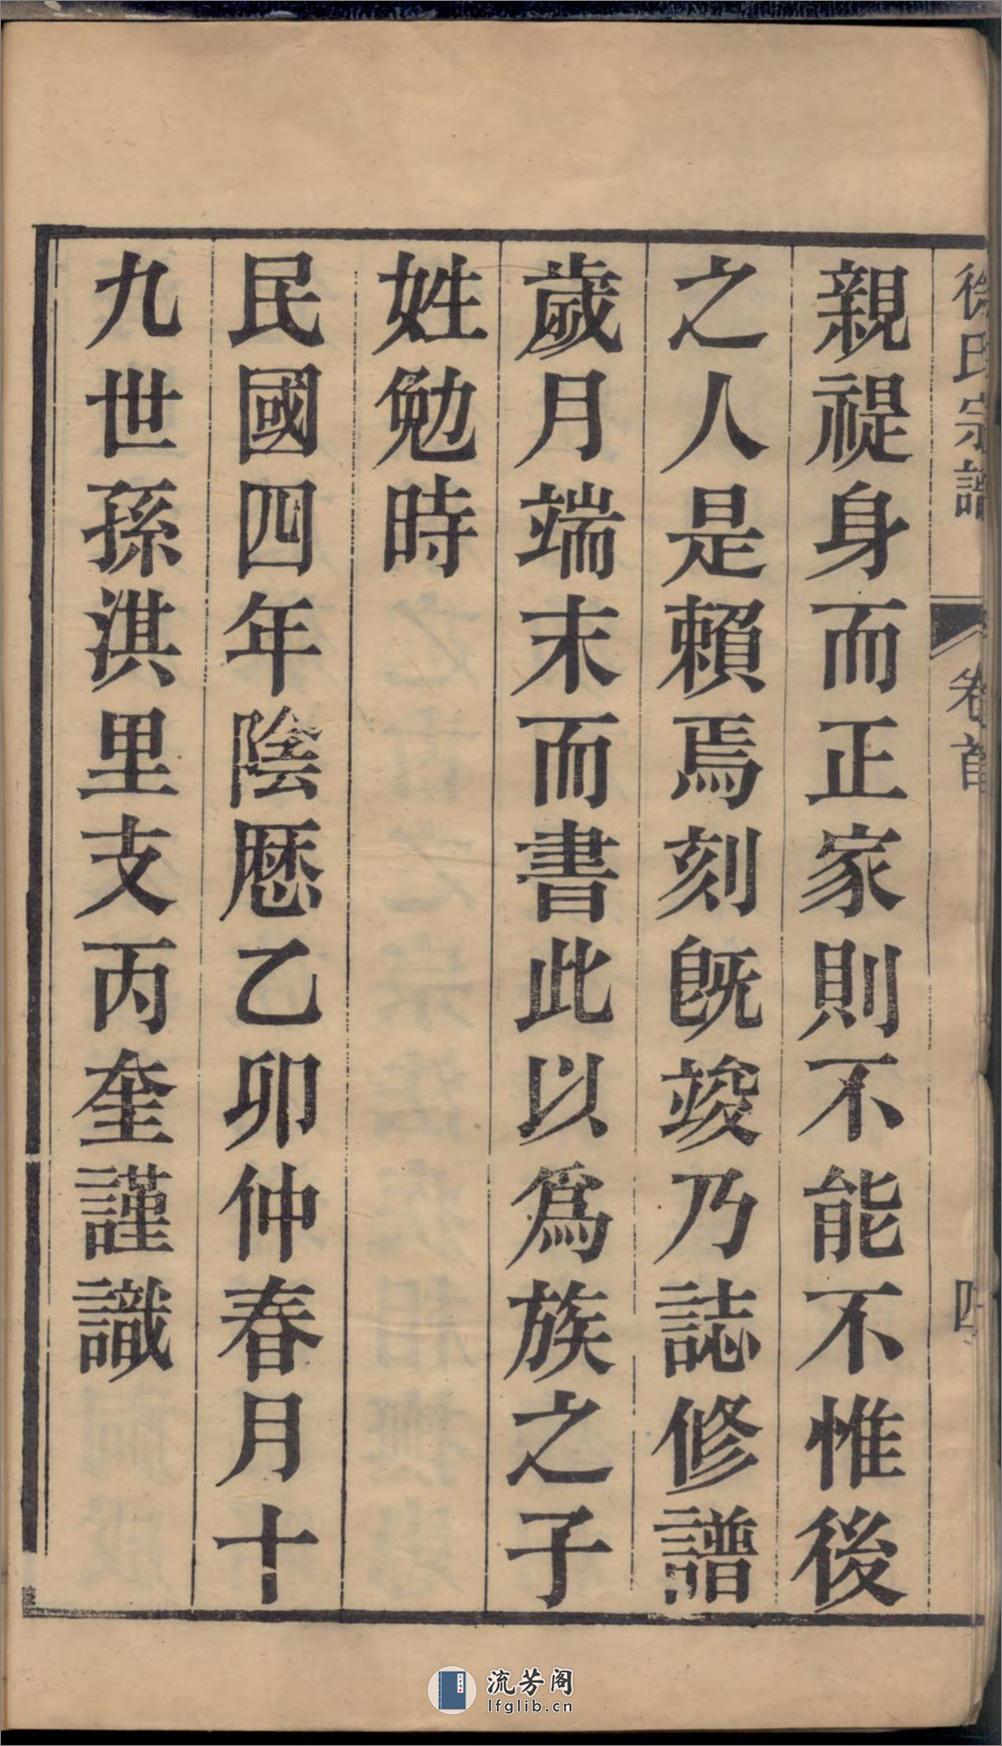 徐氏宗譜
卷首
四
親禔身而正家則不能不惟後
之人是賴焉刻既竣乃誌修譜
歲月端末而書此以為族之子
姓勉時
民國四年陰厯乙卯仲春月十
九世孫淇里支丙奎謹識
流芳阁
lfglib.cn